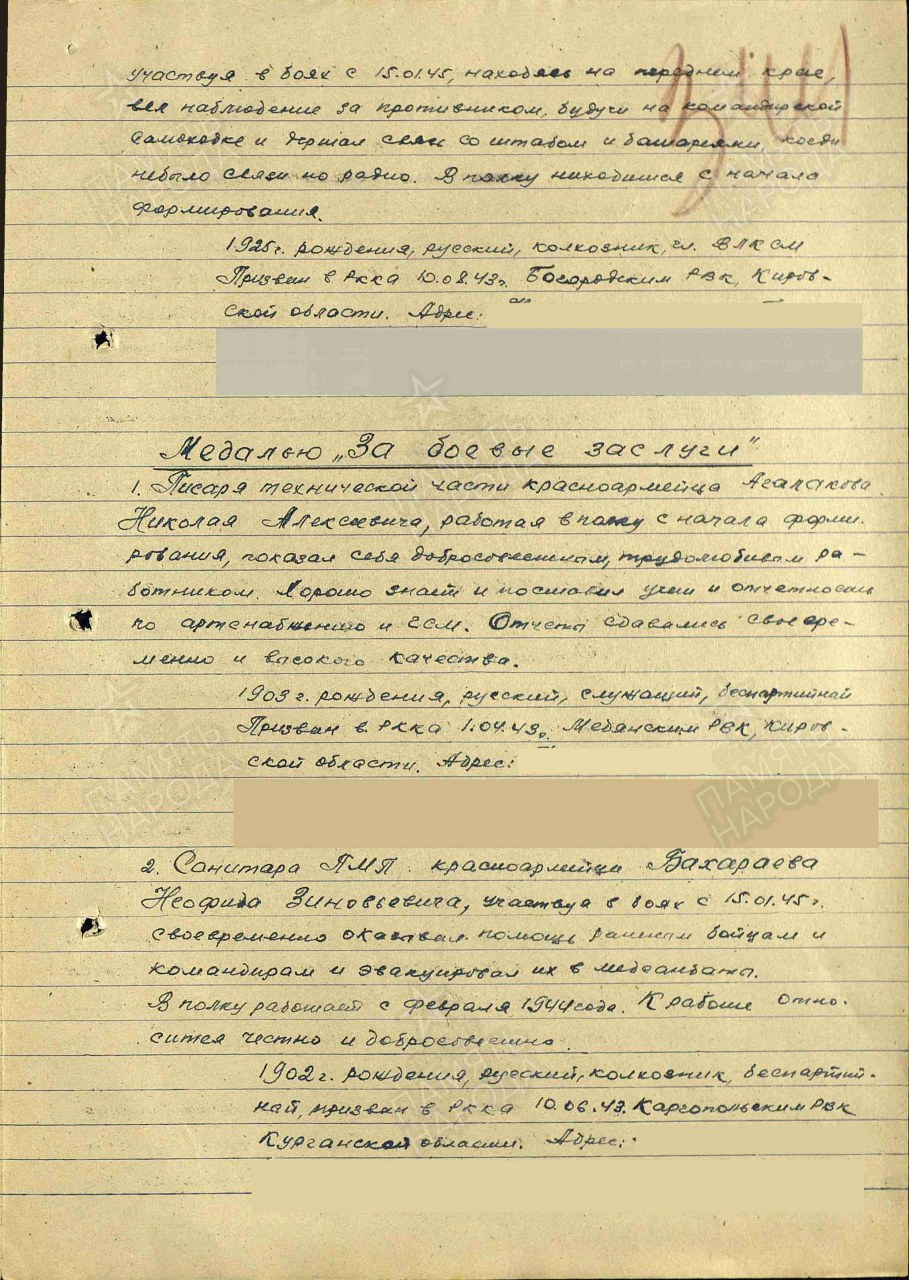 участвуя в боях с 15.01.45, находясь на переднем крае,
вел наблюдение за противником, будучи на командирской
самоходке и держал связь со штабом и батареями, когда
небыло связи по радио. В полку находится с начала
формирования.
1925 г. рождения, русский, колхозник, чл. ВЛКСМ
Призван в РККА 10.08.43г. Богородским РВК, Киров-
ской области. Адрес:
Медалью „За боевые заслуги"
1. Писаря технической части красноармейца Асалакова
Николая Алексеевича, работая в полку с начала форми-
рования, показал себя добросовестным, трудолюбивым ра-
ботником. Хорошо знает и поставил учет и отчетность
по артснабжению и ГСМ. Отчеты сдавались своевре-
менно и высокого качества.
1903 г. рождения, русский, служащий, беспартийный
Призван в РККА 1.04.43г. Медянским РВК, Киров-
ской области. Адрес:
2. Санитара ПМП красноармейца Бахараева
Неофида Зиновьевича, участвуя в боях с 15.01.45г.
своевременно оказывал помощь раненым бойцам и
командирам и эвакуировал их в медсанбаты.
В полку работает с февраля 1944 года. К работе отно-
сится честно и добросовестно.
1902 г. рождения, русский, колхозник, беспартий-
ный, призван в РККА 10.06.43. Каргопольским РВК
Курганской области. Адрес:
ПАМЯТЬ
НАРОДА